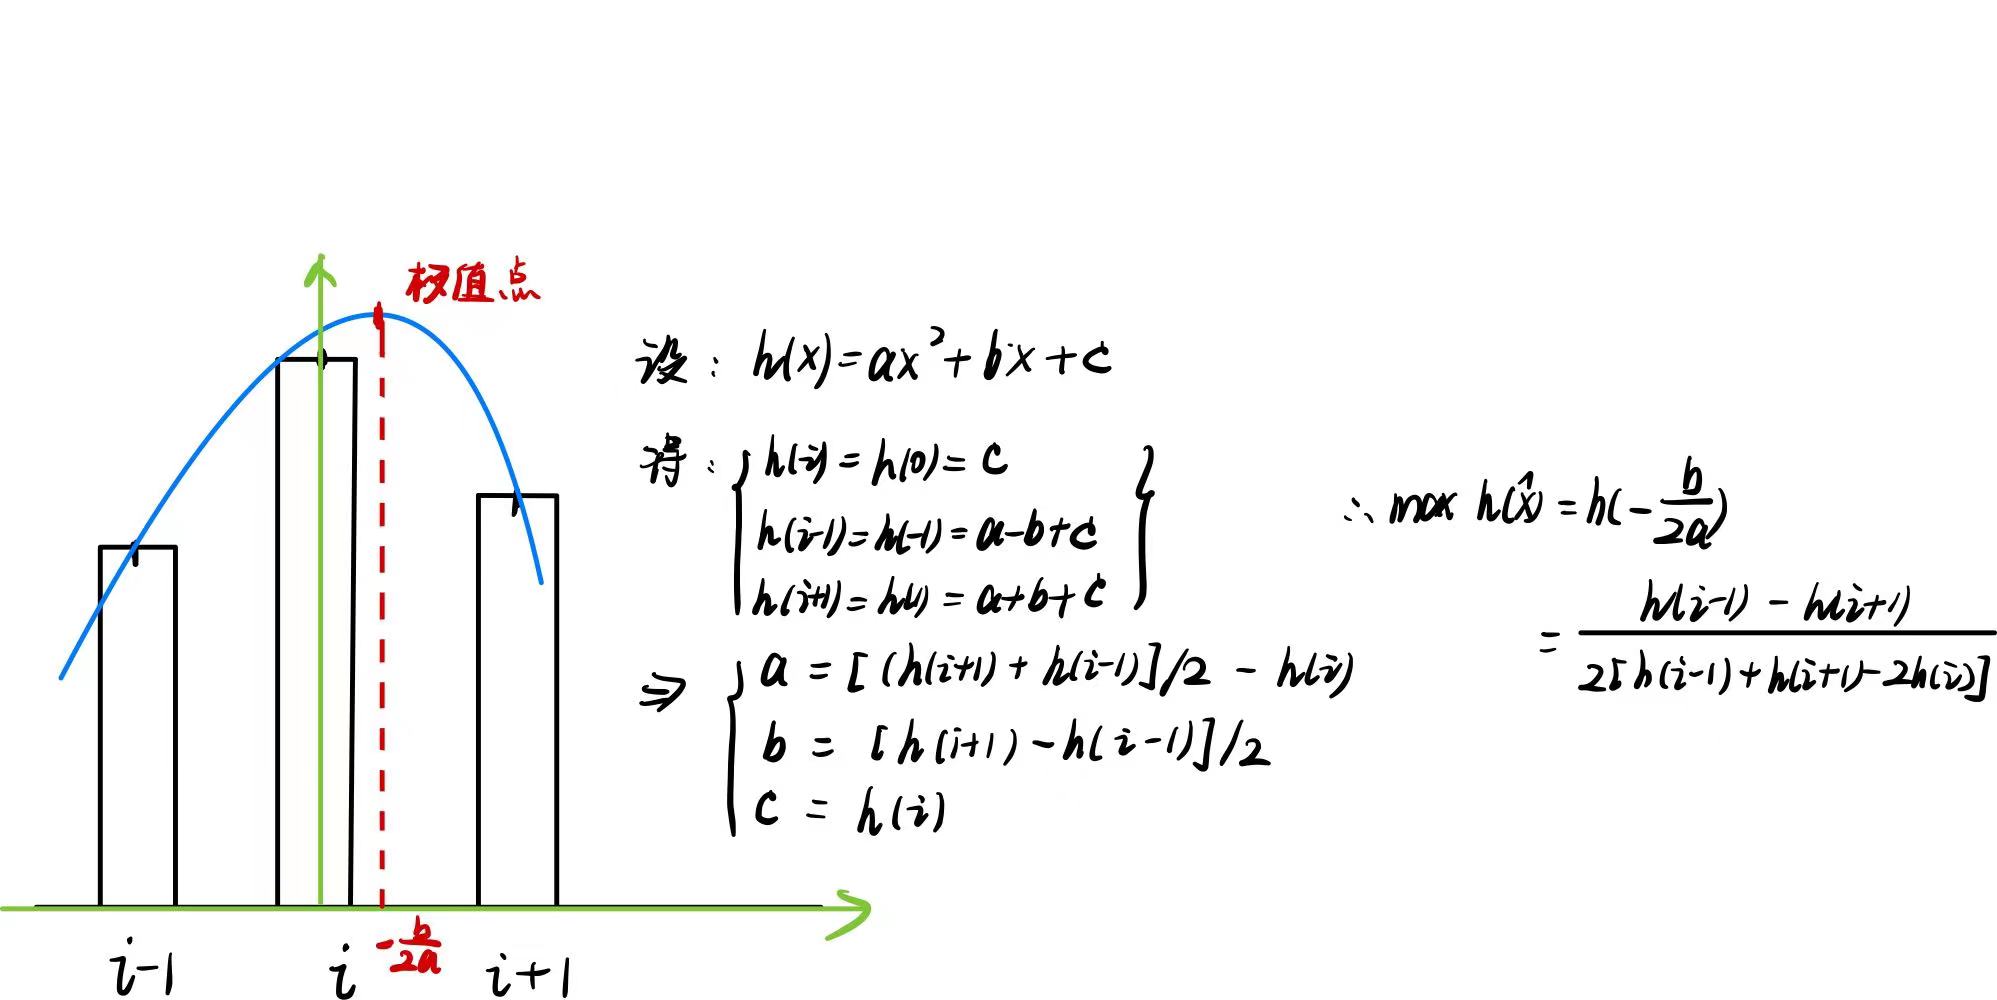 极值点
设: h(x)=ax²+bx+c
得: { h(i)=h(0)=c
h(i-1)=h(-1)=a-b+c
h(i+1)=h(1)=a+b+c }
⇒ { a = [(h(i+1)+h(i-1)]/2 - h(i)
b = [h(i+1)-h(i-1)]/2
c = h(i)
∴ max h(x̂) = h(-b/2a)
= h(i-1) - h(i+1) / 2[h(i-1)+h(i+1)-2h(i)]
i-1 i -b/2a i+1